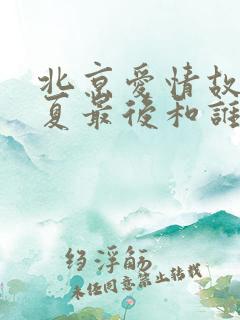 北京愛情故
夏最後和誰
绉浮觞
未经同意禁止转载